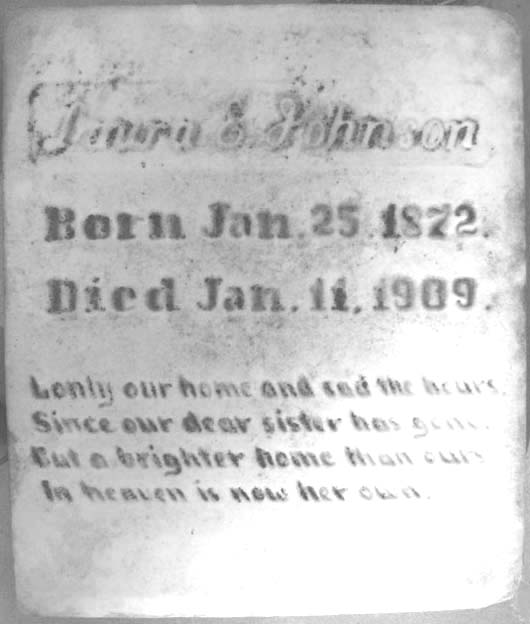 Laura E. Johnson
Born Jan. 25. 1872.
Died Jan. 11. 1909.
Lonly our home and sad the hours,
Since our dear sister has gone.
But a brighter home than ours
In heaven is now her own.